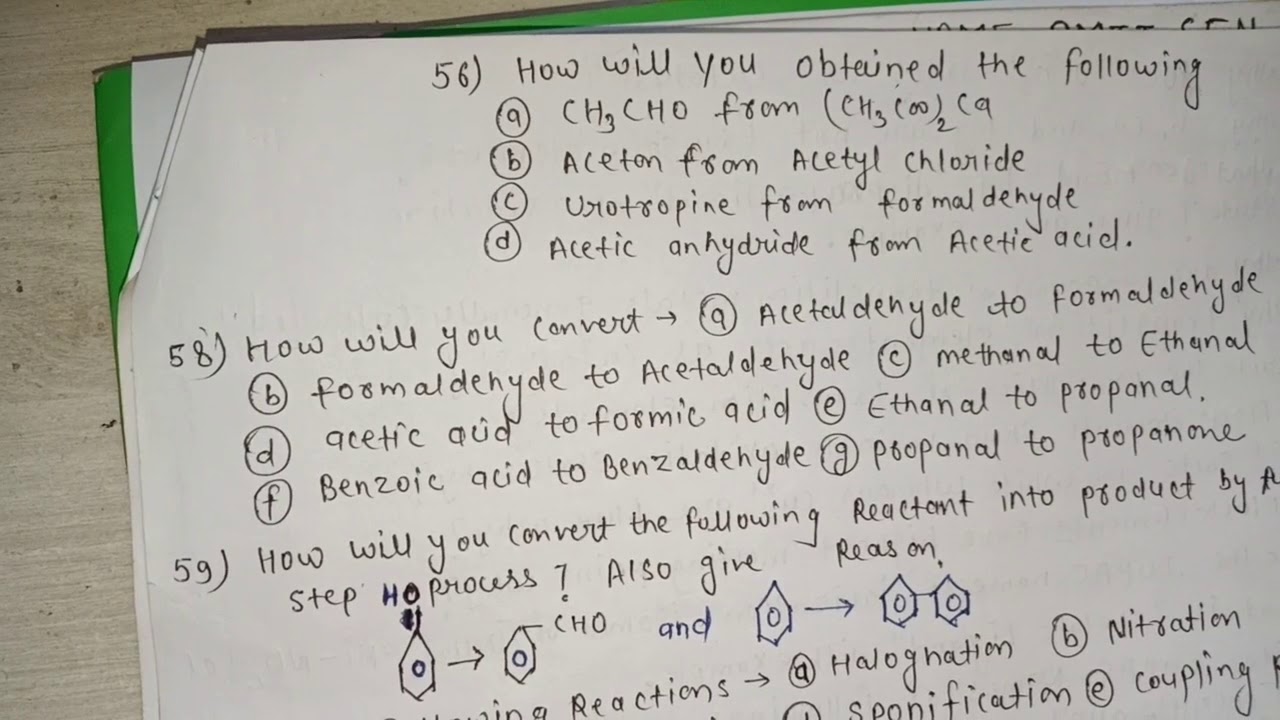 56) How will you obtained the following
(a) CH3CHO from (CH3COO)2Ca
(b) Aceton from Acetyl chloride
(c) Urotropine from formaldehyde
(d) Acetic anhydride from Acetic acid.
58) How will you convert → (a) Acetaldehyde to formaldehyde
(b) formaldehyde to Acetaldehyde (c) methanal to Ethanal
(d) acetic acid to formic acid (e) Ethanal to propanal.
(f) Benzoic acid to Benzaldehyde (g) propanal to propanone
59) How will you convert the following Reactant into product by
step process? Also give Reason.
HO
→ CHO and →
Reactions → (a) Halognation (b) Nitration
sponification (e) coupling